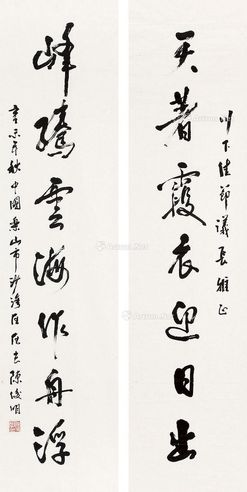 川下佳節議長雅正
天著霞衣迎日出
峰騰雲海作舟浮
辛未年秋中國樂山市沙灣區區長陳俊明